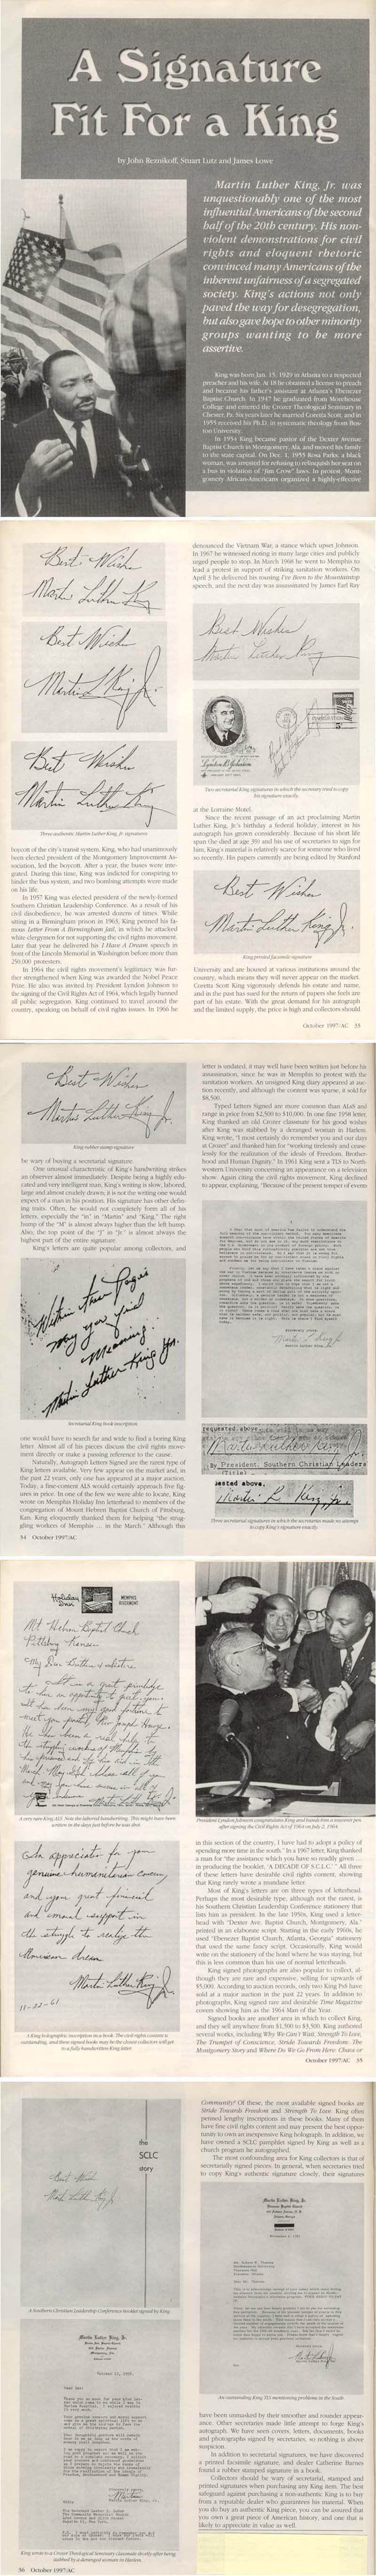 A Signature
Fit For a King
by John Reznikoff, Stuart Lutz and James Lowe
Martin Luther King, Jr. was
unquestionably one of the most
influential Americans of the second
half of the 20th century. His non-
violent demonstrations for civil
rights and eloquent rhetoric
convinced many Americans of the
inherent unfairness of a segregated
society. King's actions not only
paved the way for desegregation,
but also gave hope to other minority
groups wanting to be more
assertive.
King was born Jan. 15, 1929 in Atlanta to a respected
preacher and his wife. At 18 he obtained a license to preach
and became his father's assistant at Atlanta's Ebenezer
Baptist Church. In 1947 he graduated from Morehouse
College and entered the Crozer Theological Seminary in
Chester, Pa. Six years later he married Coretta Scott, and in
1955 received his Ph.D. in systematic theology from Bos-
ton University.
In 1954 King became pastor of the Dexter Avenue
Baptist Church in Montgomery, Ala., and moved his family
to the state capital. On Dec. 1, 1955 Rosa Parks, a black
woman, was arrested for refusing to relinquish her seat on
a bus in violation of "Jim Crow" laws. In protest, Mont-
gomery African-Americans organized a highly-effective
Best Wishes
Martin Luther King
Best Wishes
Martin L. King Jr.
Best Wishes
Martin Luther King
Three authentic Martin Luther King, Jr. signatures
boycott of the city's transit system. King, who had unanimously
been elected president of the Montgomery Improvement As-
sociation, led the boycott. After a year, the buses were inte-
grated. During this time, King was indicted for conspiring to
hinder the bus system, and two bombing attempts were made
on his life.
In 1957 King was elected president of the newly-formed
Southern Christian Leadership Conference. As a result of his
civil disobedience, he was arrested dozens of times. While
sitting in a Birmingham prison in 1963, King penned his fa-
mous Letter From A Birmingham Jail, in which he attacked
white clergymen for not supporting the civil rights movement.
Later that year he delivered his I Have A Dream speech in
front of the Lincoln Memorial in Washington before more than
250,000 protesters.
In 1964 the civil rights movement's legitimacy was fur-
ther strengthened when King was awarded the Nobel Peace
Prize. He also was invited by President Lyndon Johnson to
the signing of the Civil Rights Act of 1964, which legally banned
all public segregation. King continued to travel around the
country, speaking on behalf of civil rights issues. In 1966 he
denounced the Vietnam War, a stance which upset Johnson.
In 1967 he witnessed rioting in many large cities and publicly
urged people to stop. In March 1968 he went to Memphis to
lead a protest in support of striking sanitation workers. On
April 3 he delivered his rousing I've Been to the Mountaintop
speech, and the next day was assassinated by James Earl Ray
Best Wishes
Martin Luther King
Two secretarial King signatures in which the secretary tried to copy
his signature exactly.
at the Lorraine Motel.
Since the recent passage of an act proclaiming Martin
Luther King, Jr.'s birthday a federal holiday, interest in his
autograph has grown considerably. Because of his short life
span (he died at age 39) and his use of secretaries to sign for
him, King's material is relatively scarce for someone who lived
so recently. His papers currently are being edited by Stanford
Best Wishes
Martin Luther King Jr.
King printed facsimile signature
University and are housed at various institutions around the
country, which means they will never appear on the market.
Coretta Scott King vigorously defends his estate and name,
and in the past has sued for the return of papers she feels are
part of his estate. With the great demand for his autograph
and the limited supply, the price is high and collectors should
October 1997/AC 33
Best Wishes
Martin Luther King Jr.
King rubber stamp signature
be wary of buying a secretarial signature.
One unusual characteristic of King's handwriting strikes
an observer almost immediately. Despite being a highly edu-
cated and very intelligent man, King's writing is slow, labored,
large and almost crudely drawn; it is not the writing one would
expect of a man in his position. His signature has other defin-
ing traits. Often, he would not completely form all of his
letters, especially the "in" in "Martin" and "King." The right
hump of the "M" is almost always higher than the left hump.
Also, the top point of the "J" in "Jr." is almost always the
highest part of the entire signature.
King's letters are quite popular among collectors, and
Within these Pages
May you find
Meaning
Martin Luther King Jr.
Secretarial King book inscription
one would have to search far and wide to find a boring King
letter. Almost all of his pieces discuss the civil rights move-
ment directly or make a passing reference to the cause.
Naturally, Autograph Letters Signed are the rarest type of
King letters available. Very few appear on the market and, in
the past 22 years, only one has appeared at a major auction.
Today, a fine-content ALS would certainly approach five fig-
ures in price. In one of the few we were able to locate, King
wrote on Memphis Holiday Inn letterhead to members of the
congregation of Mount Hebron Baptist Church of Pittsburg,
Kan. King eloquently thanked them for helping the "strug-
gling workers of Memphis ... in the March." Although this
34 October 1997/AC
letter is undated, it may well have been written just before his
assassination, since he was in Memphis to protest with the
sanitation workers. An unsigned King diary appeared at auc-
tion recently, and although the content was sparse, it sold for
$8,500.
Typed Letters Signed are more common than ALsS and
range in price from $2,500 to $10,000. In one fine 1958 letter,
King thanked an old Crozer classmate for his good wishes
after King was stabbed by a deranged woman in Harlem.
King wrote, "I most certainly do remember you and our days
at Crozer" and thanked him for "working tirelessly and cease-
lessly for the realization of the ideals of Freedom, Brother-
hood and Human Dignity." In 1961 King sent a TLS to North-
western University concerning an appearance on a television
show. Again citing the civil rights movement, King declined
to appear, explaining, "Because of the present tempo of events
Sincerely yours,
Martin Luther King, Jr.
requested above,
Martin Luther King Jr.
By President, Southern Christian Leaders
(Title)
uested above.
Martin L King, Jr.
Three secretarial signatures in which the secretaries made no attempt
to copy King's signature exactly.
Holiday Inn
MEMPHIS
RIVERMONT
Mt Hebron Baptist Church
Pittsburg Kansas
A very rare King ALS. Note the labored handwriting. This might have been
written in the days just before he was shot
In appreciation for your
genuine humanitarian concern,
and your great financial
and moral support in
the struggle to realize the
American dream
Martin Luther King Jr.
11-22-61
A King holographic inscription in a book. The civil rights content is
outstanding, and these signed books may be the closest collectors will get
to a fully handwritten King letter
President Lyndon Johnson congratulates King and hands him a souvenir pen
after signing the Civil Rights Act of 1964 on July 2, 1964.
in this section of the country, I have had to adopt a policy of
spending more time in the south." In a 1967 letter, King thanked
a man for "the assistance which you have so readily given ...
in producing the booklet, 'A DECADE OF S.C.L.C.'" All three
of these letters have desirable civil rights content, showing
that King rarely wrote a mundane letter.
Most of King's letters are on three types of letterhead.
Perhaps the most desirable type, although not the rarest, is
his Southern Christian Leadership Conference stationery that
lists him as president. In the late 1950s, King used a letter-
head with "Dexter Ave. Baptist Church, Montgomery, Ala."
printed in an elaborate script. Starting in the early 1960s, he
used "Ebenezer Baptist Church, Atlanta, Georgia" stationery
that used the same fancy script. Occasionally, King would
write on the stationery of the hotel where he was staying, but
this is less common than his use of normal letterheads.
King signed photographs are also popular to collect, al-
though they are rare and expensive, selling for upwards of
$5,000. According to auction records, only two King PsS have
sold at a major auction in the past 22 years. In addition to
photographs, King signed rare and desirable Time Magazine
covers showing him as the 1964 Man of the Year.
Signed books are another area in which to collect King,
and they sell anywhere from $1,500 to $3,500. King authored
several works, including Why We Can't Wait, Strength To Love,
The Trumpet of Conscience, Stride Towards Freedom: The
Montgomery Story and Where Do We Go From Here: Chaos or
October 1997/AC 35
the
SCLC
story
Best Wishes
Martin Luther King Jr.
A Southern Christian Leadership Conference booklet signed by King.
Martin Luther King, Jr.
October 15, 1958
King wrote to a Crozer Theological Seminary classmate shortly after being
stabbed by a deranged woman in Harlem.
36 October 1997/AC
Community? Of these, the most available signed books are
Stride Towards Freedom and Strength To Love. King often
penned lengthy inscriptions in these books. Many of them
have fine civil rights content and may present the best oppor-
tunity to own an inexpensive King holograph. In addition, we
have owned a SCLC pamphlet signed by King as well as a
church program he autographed.
The most confounding area for King collectors is that of
secretarially signed pieces. In general, when secretaries tried
to copy King's authentic signature closely, their signatures
Martin Luther King, Jr.
Ebenezer Baptist Church
Atlanta, Georgia
An outstanding King TLS mentioning problems in the South.
have been unmasked by their smoother and rounder appear-
ance. Other secretaries made little attempt to forge King's
autograph. We have seen covers, letters, documents, books
and photographs signed by secretaries, so nothing is above
suspicion.
In addition to secretarial signatures, we have discovered
a printed facsimile signature, and dealer Catherine Barnes
found a rubber stamped signature in a book.
Collectors should be wary of secretarial, stamped and
printed signatures when purchasing any King item. The best
safeguard against purchasing a non-authentic King is to buy
from a reputable dealer who guarantees his material. When
you do buy an authentic King piece, you can be assured that
you own a great piece of American history, and one that is
likely to appreciate in value as well.